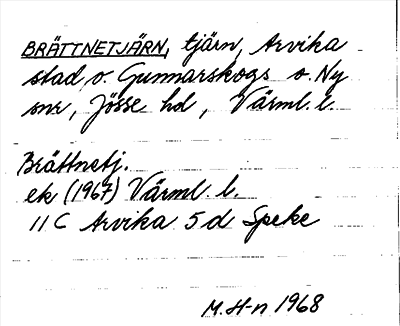 BRÄTTNETJÄRN, tjärn, Arvika
stad, o. Gunnarskogs o. Ny
snr, Jösse hd, Värml. l.
Brättnetj.
ek (1967) Värml. l.
11 C Arvika 5 d Speke
M. H-n 1968